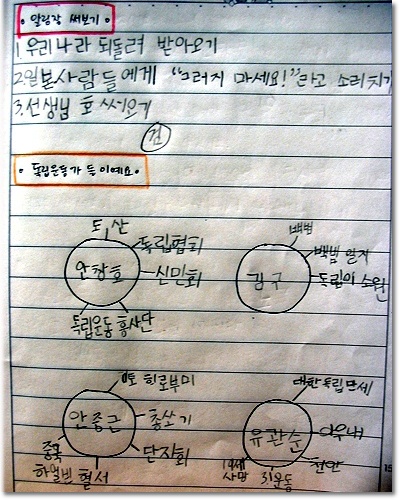 • 알림장 써보기 •
1. 우리나라 되돌려 받아오기
2. 일본사람들에게 "그러지 마세요!"라고 소리치기
3. 선생님 호 써오기
김
• 독립운동가 들이예요 •
도산
독립협회
안창호
신민회
독립운동 흥사단
백범
백범 일지
김구
독립이 소원
이토 히로부미
안중근
총쏘기
단지회
중국
하얼빈 혈서
대한독립만세
유관순
아우내
천안
19세
사망
3.1운동